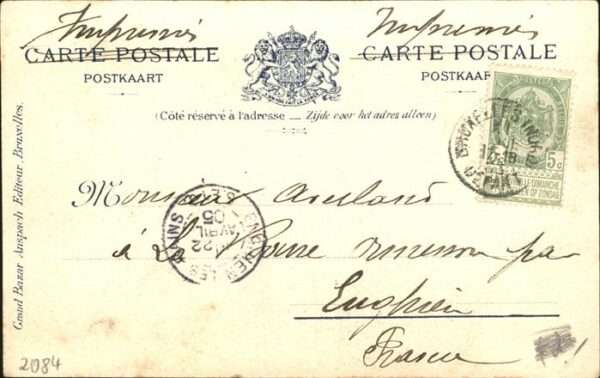 Imprimés Imprimés
CARTE POSTALE CARTE POSTALE
POSTKAART POSTKAART
(Côté réservé à l'adresse __ Zijde voor het adres alleen)
BRUXELLES
DEPART
5c
Monsieur
à La
par
Enghien
France
ENGHIEN LES BAINS
22
AVRIL
05
Grand Bazar Anspach Editeur, Bruxelles.
2084